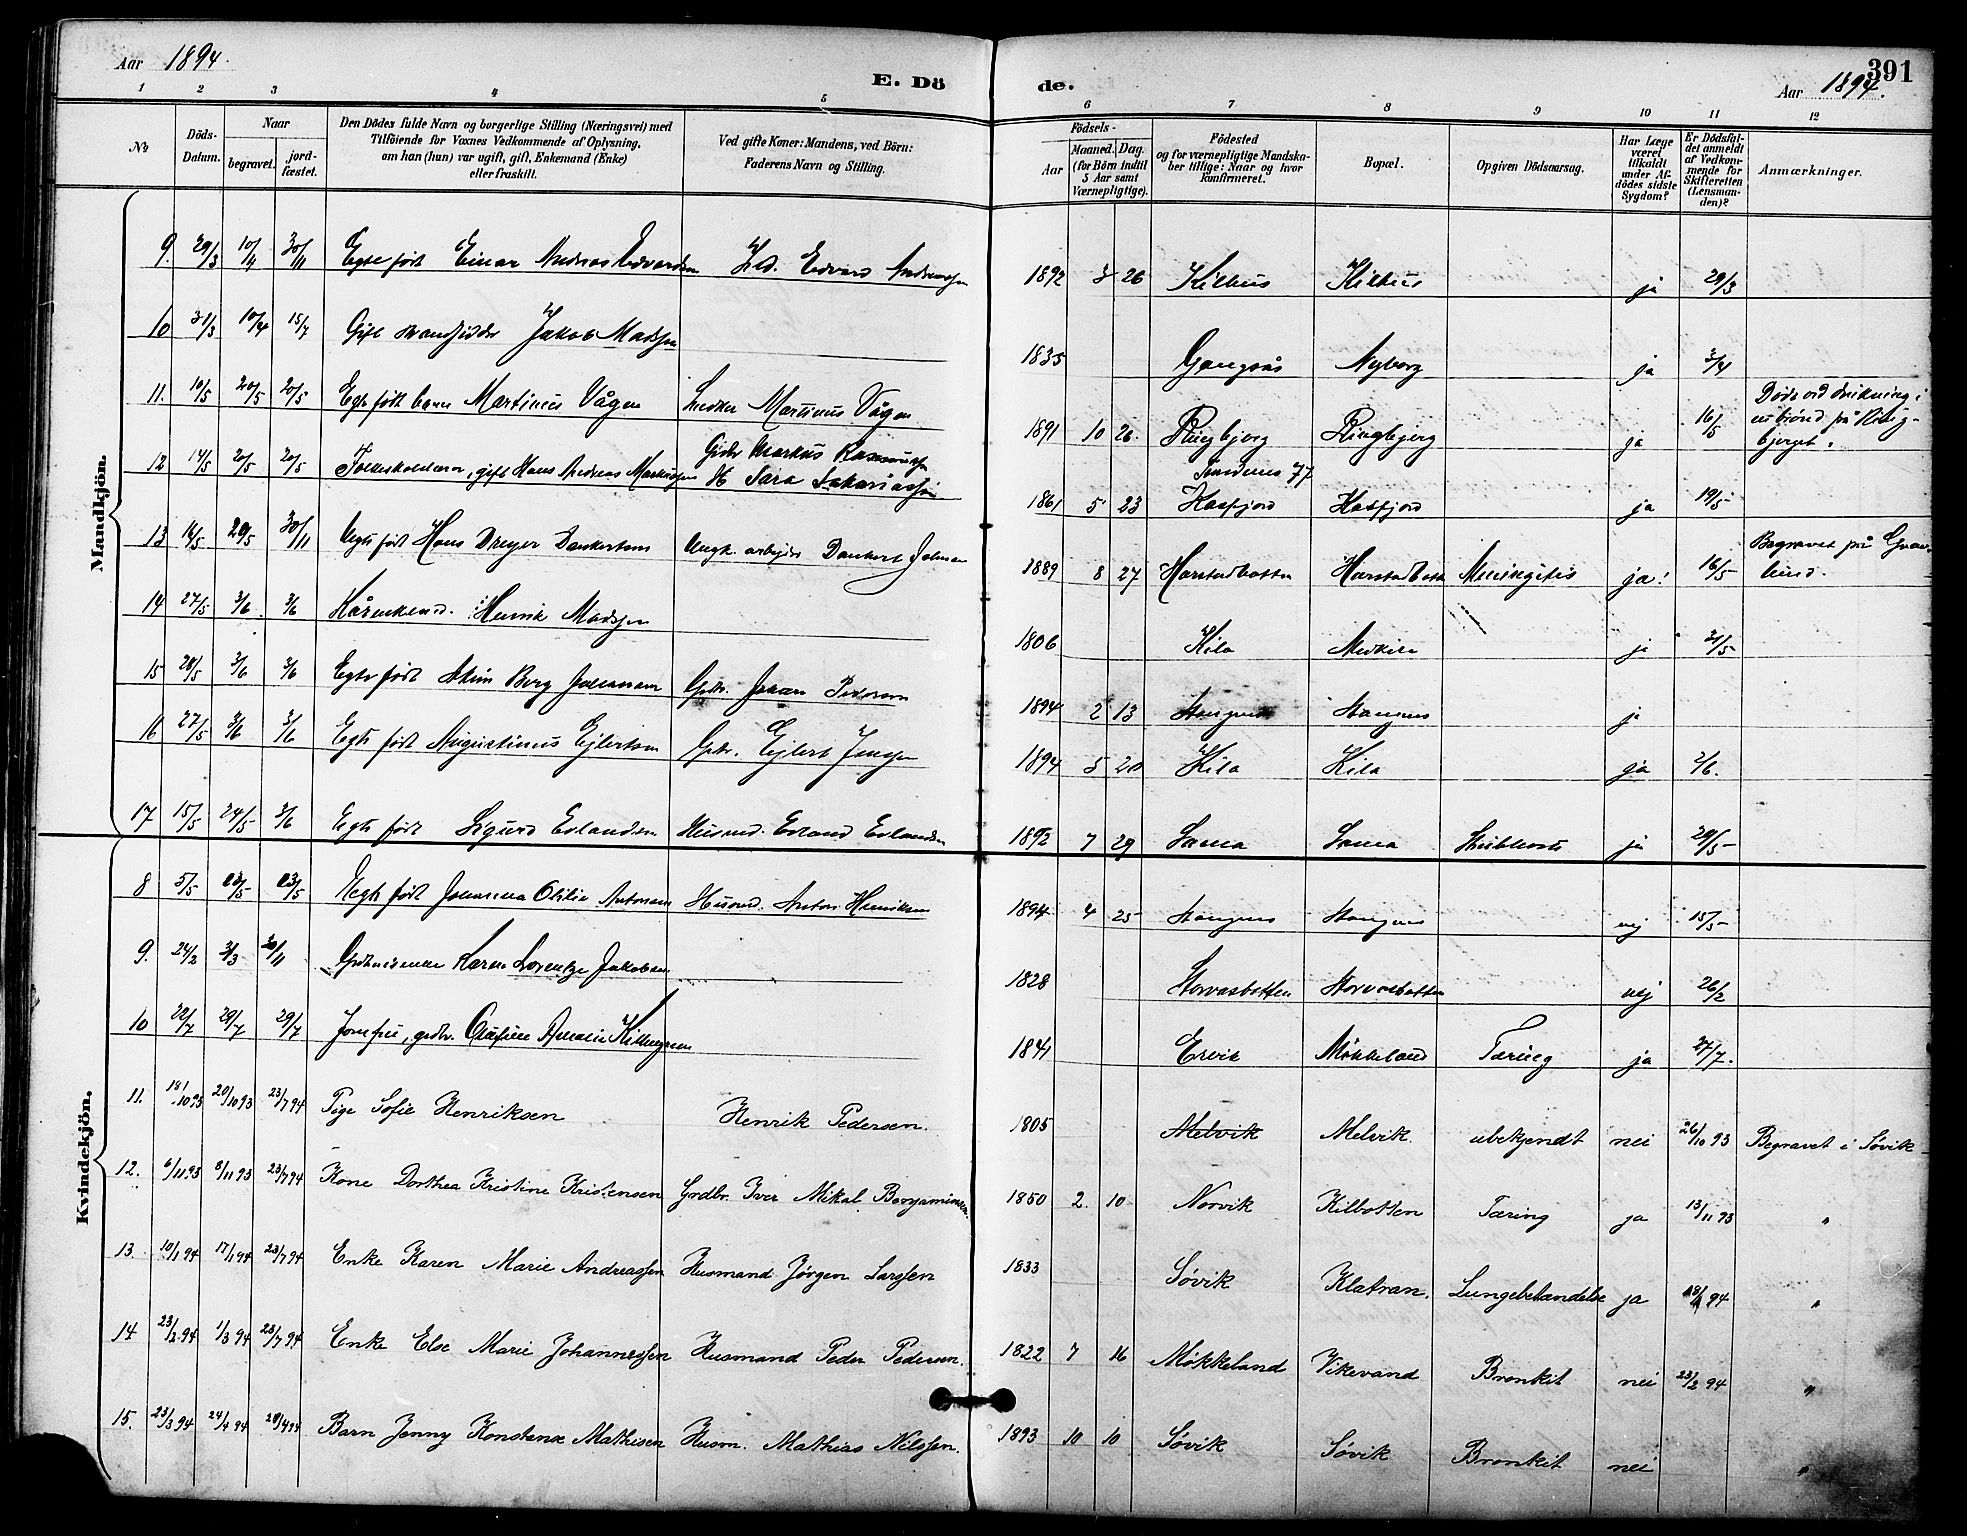 Aar 1894.
E. Dö
de.
391
Aar 1894.
1 2 3 4 5 6 7 8 9 10 11 12
No
Döds-Datum.
Naar
begravet.
jordfæstet.
Den Dödes fulde Navn og borgerlige Stilling (Næringsvei) med
Tilföiende for Voxnes Vedkommende af Oplysning,
om han (hun) var ugift, gift, Enkemand (Enke)
eller fraskilt.
Ved gifte Koner: Mandens, ved Börn:
Faderens Navn og Stilling.
Födsels-
Aar
Maaned. Dag.
(for Börn indtil
5 Aar samt
Værnepligtige).
Födested
og for værnepligtige Mandska-
ber tillige: Naar og hvor
konfirmeret.
Bopæl.
Opgiven Dödsaarsag.
Har Læge
været
tilkaldt
under Af-
dödes sidste
Sygdom?
Er Dödsfal-
det anmeldt
af Vedkom-
mende for
Skifteretten
(Lensman-
den)?
Anmærkninger.
Mandkjön.
9. 29/3 10/4 30/11 Egte født Einar Andreas Edvardsen Edvard Andreassen 1892 3 26 Kilhus Kilhus ja 29/3
10 31/3 10/4 15/7 Gift Jakob Madsen 1835 Gangsås Nyborg ja 3/4
11. 10/5 20/5 20/5 Egte født barn Martinus Vågen Martinus Vågen 1891 10 26 Ringbjerg Ringbjerg ja 16/5 Døde ved drukning i
en brønd på Ring-
bjerget.
12 14/5 20/5 20/5 Folkeskolelærer, gift Hans Andreas Markussen Gdbr Markus Rasmussen
H Sara Sakariassen 1861 5 23 77
Kasfjord Kasfjord ja 19/5
13 14/5 29/5 30/11 Uegte født Hans Dreyer Dankertsen Ungk. arbejder Dankert Johnsen 1889 8 27 Harstadbotten Harstadbotn Meningitis ja! 16/5 Begravet på Gran-
lund.
14 27/5 3/6 3/6 Kårenkemd. Henrik Madsen 1806 Kila Medkila ja 31/5
15 28/5 3/6 3/6 Egte født Berg Johansen Gdbr. Johan Pedersen 1894 2 13 Stangnes Stangnes ja
16 27/5 3/6 3/6 Egte født Augustinus Ejlertsen Gdbr. Ejlert Jensen 1894 5 20 Kila Kila ja 2/6.
17 15/5 24/5 3/6 Egte født Sigurd Erlandsen Husmd. Erland Erlandsen 1892 7 29 Sama Sama ja 29/5
Kvindekjön.
8 5/5 13/5 13/5 Uegte født Johanna Otilie Antonsen Husmd. Anton Henriksen 1894 4 25 Stangnes Stangnes nej 15/5
9. 24/2 3/3 30/11 Karen Lorentze Jakobsen 1828 Storvasbotten Storvasbotten nej 26/2
10 22/7 29/7 29/7 Jomfru, gdbr. Olufine Amalie 1841 Ervik Møkkeland Tæring ja 27/7.
11. 18/10 93 20/10 93 23/7 94 Pige Sofie Henriksen Henrik Pedersen. 1805 Melvik Melvik. ubekjendt nei 26/10 93 Begravet i Søvik
12. 6/11 93 8/11 93 23/7 94 Kone Dorthea Kristine Kristensen Grdbr. Iver Mikal Benjaminsen. 1850 2. 10 Norvik Kilbotten Tæring ja 13/11 93 "
13. 10/1 94 17/1 94 23/7 94 Enke Karen Marie Andreassen Husmand Jørgen Larssen 1833 Søvik Klatran. Lungebetændelse ja 18/1 94 "
14. 23/2 94 1/3 94 23/7 94 Enke Else Marie Johannessen Husmand Peder Pedersen. 1822 7 16 Møkkeland Vikevand Bronkit nei 23/2 94 "
15. 23/3 94 24/4 94 Barn Jenny Konstanse Mathisen Husm. Mathias Nilssen. 1893 10 10 Søvik Søvik Bronkit nei "